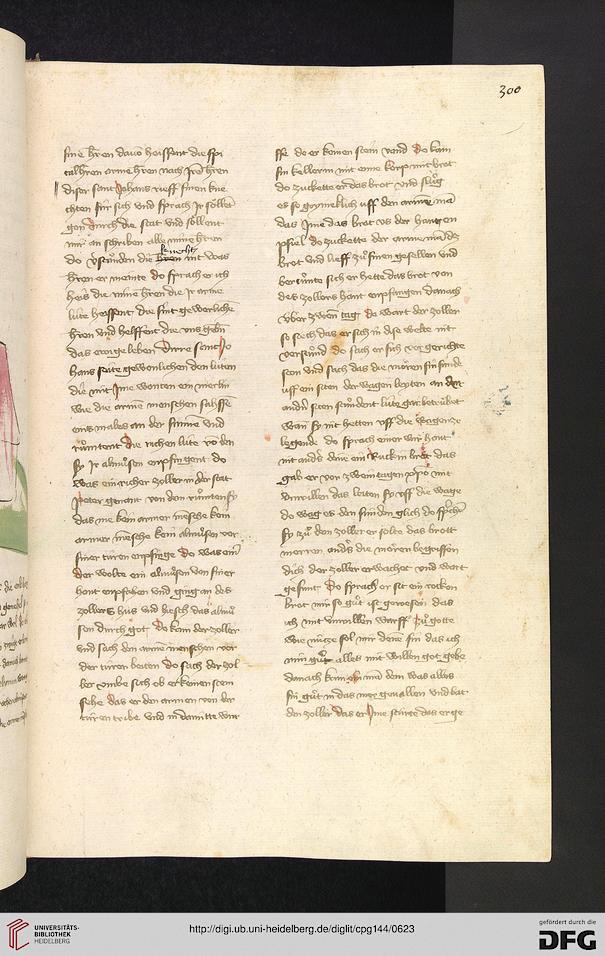 300
sine h̄ren dauō heissent die spi
tal h̄ren armē h̄ren nach Jrē h̄ren
diser sant Johans rieff sinen kne
chten für sich und sprach jr söllēt
gon durch die stat und söllent
mir an schriben alle mine h̄ren
do v̄stunden die knecht nit was
h̄ren er meinte do sprach er ich
heis die mine h̄ren die Jr arme
lüte heissent die sint gewerliche
h̄ren und helffent die uns gebn̄
das ewige leben Dirre sant Jo
hans seite gewonlichen den lüten
die mit Jme wonten ein
wie die armē menschen sassēn
eins males an der sunnē und
rūmtent die richen lüte vō den
sÿ Jr almůsen enpfingent do
was ein richer zoller in der stat
peter genant von den rūmten sÿ
das nie kein armer mēsche kein
armer mēsche kein almůsen vor
siner türen enpfinge do was eīr
der wolte ein almůsen von siner
hant enpfohen und ging an des
zollers hus und hiesch das almů
sen durch got do kam der zoller
und sach den armē menschen vor
der türen beiten do sach der zol
ler umbe sich ob er keinen stein
sehe das er den armen von der
türen tribe und in damitte wür
ffe do er keinen stein vand do kam
sin kellerin mit eime korp mit brot
do zuckette er das brot und slůg
es so grymelich uff den armē mā
das Jme das brot us der hangen
do zuckette der armē mā dz
brot und lieff zů sinen gesellen und
berůmte sich er hette das brot von
des zollers hant enpfangen danach
über zwen tag do wart der zoller
so siech das er sich in dise welte nit
versūnd do sach er sich vor gerichte
ston und sach das die mören sin sünde
uff ein siten der wagen leyten an der
andn̄ siten stündent lüte gar betrübet
wan sÿ nit hetten uff die wagen ze
legende do sprach einer wir hant
nit andͤs dēne ein Ruckin brot das
gab er vor zwein tagen xp̄o mit
unwillen das leiten sÿ uff die wage
do wag es den sünden glich do sprachēt
sÿ zů den zoller er solte das brott
merren andͤs die mören begriffen
dich der zoller erwachet und wart
gesunt Do sprach er sit ein rocken
brot mir so gůt ist gewesen das
ich mit unwillen warff zů gotte
wie nütze sol mir denē sin das ich
min gůt alles mit willen got gebe
danach kam er und dem was alles
sin gůt in das mer geuallen und bat
den zoller das er Jme stürte das er ge
UNIVERSITÄTS-
BIBLIOTHEK
HEIDELBERG
http://digi.ub.uni-heidelberg.de/diglit/cpg144/0623
gefördert durch die
DFG